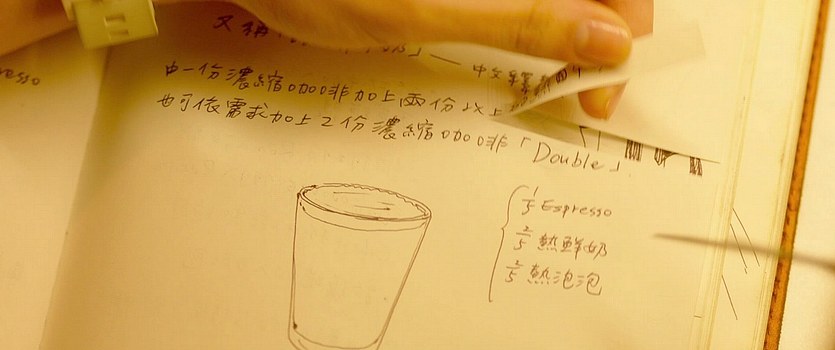 又稱
esso
由一份濃縮咖啡加上兩份以上
也可依需求加上2份濃縮咖啡「Double」.
1/5 Espresso
2/5 熱鮮奶
2/5 熱泡泡